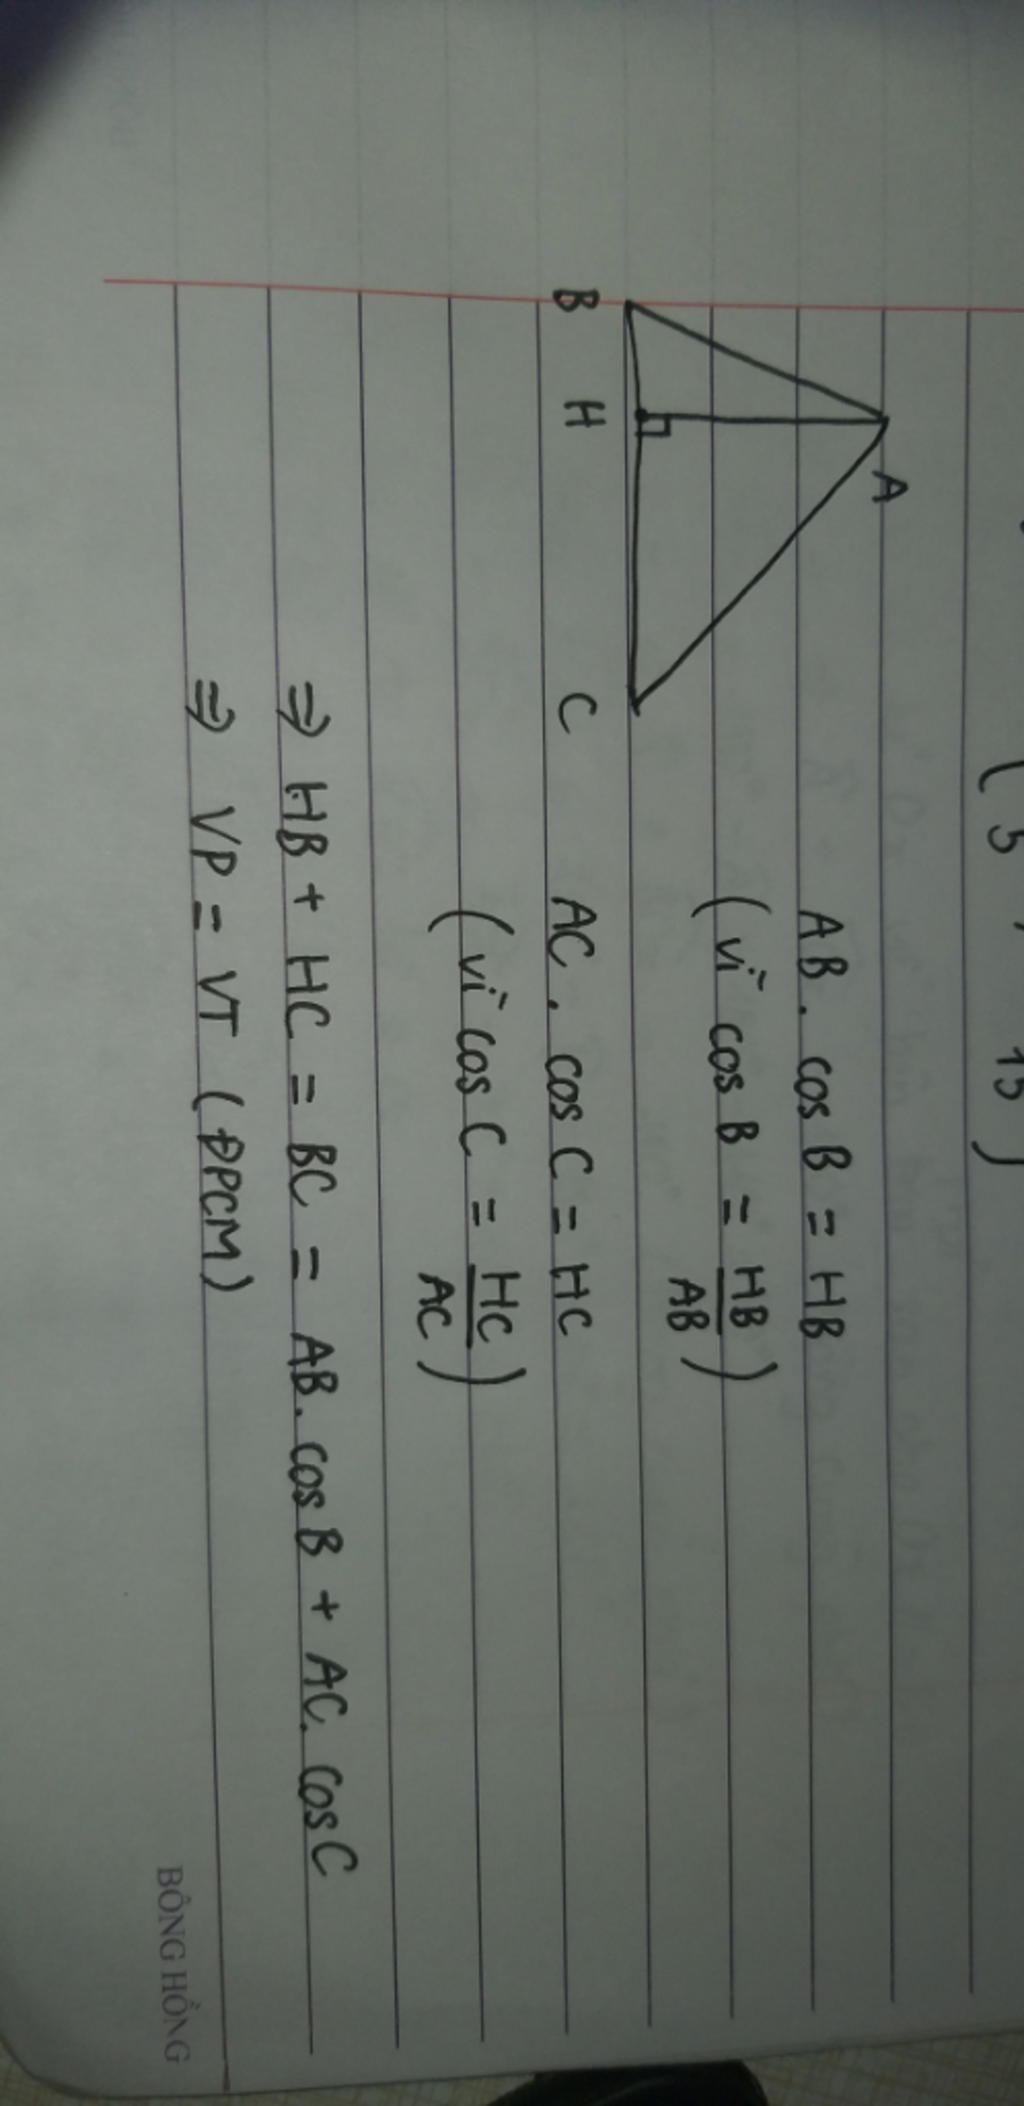 ( 5 , 15 )
A
AB. cos B = HB
(vì cos B = HB/AB)
B H C
AC. cos C = HC
(vì cos C = HC/AC)
⇒ HB + HC = BC = AB. cos B + AC. cos C
⇒ VP = VT (ĐPCM)
BÔNG HỒNG